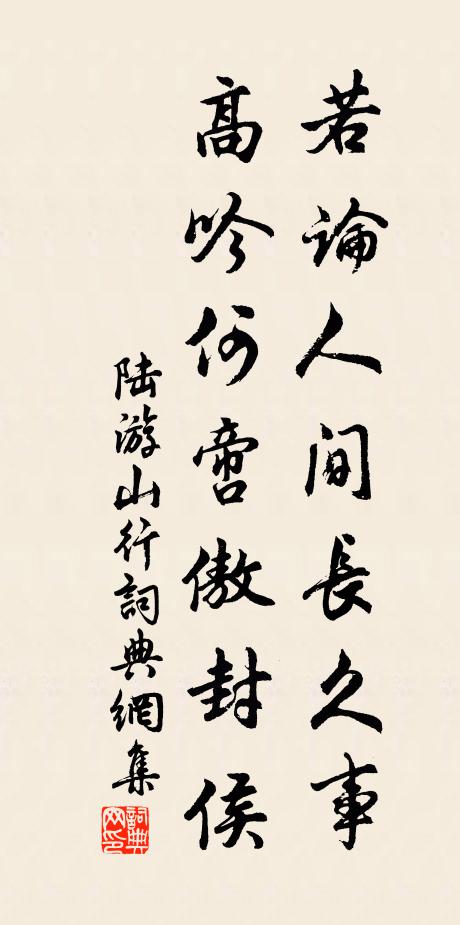 若論人間長久事
高吟何啻傲封侯
陸游山行詞典網集
詞典網印